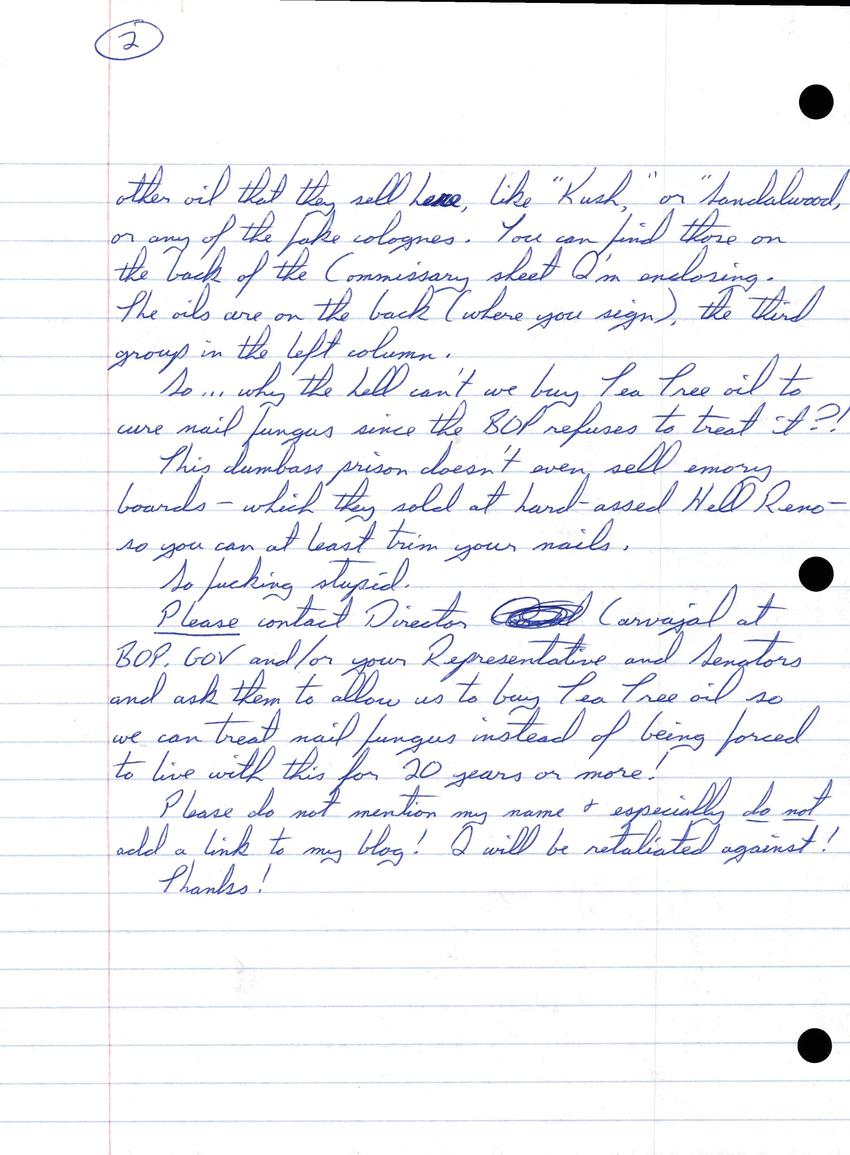 2
other oil that they sell here, like "Kush," or "Sandalwood,
or any of the fake colognes. You can find those on
the back of the Commissary sheet I'm enclosing.
The oils are on the back (where you sign), the third
group in the left column.
So... why the hell can't we buy Tea Tree oil to
cure nail fungus since the BOP refuses to treat it?!
This dumbass prison doesn't even sell emory
boards - which they sold at hard-assed Hell Reno -
so you can at least trim your nails.
So fucking stupid.
Please contact Director Carvajal at
BOP.GOV and/or your Representative and Senators
and ask them to allow us to buy Tea Tree oil so
we can treat nail fungus instead of being forced
to live with this for 20 years or more!
Please do not mention my name + especially do not
add a link to my blog! I will be retaliated against!
Thanks!